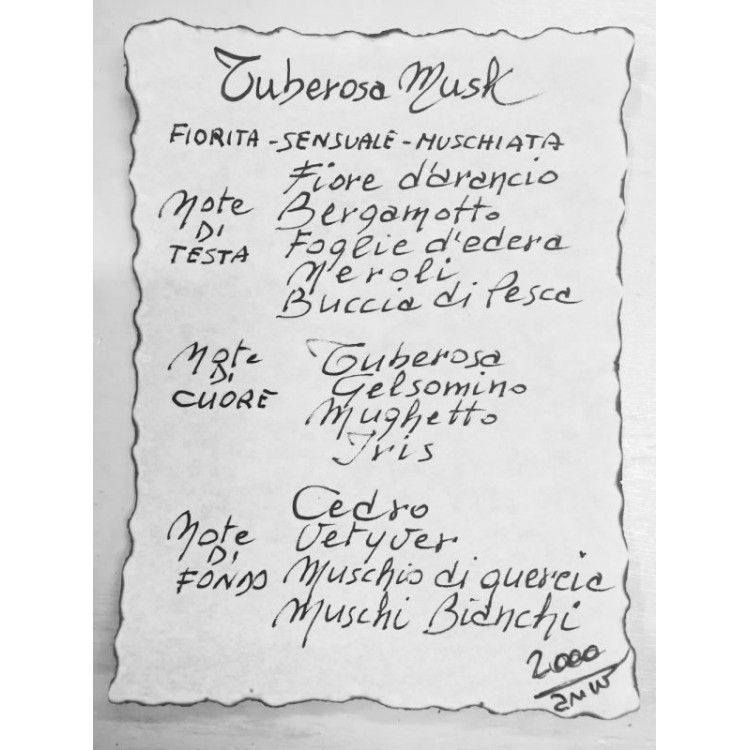 Tuberosa Musk
FIORITA - SENSUALE - MUSCHIATA
Note
DI
TESTA
Fiore d'arancio
Bergamotto
Foglie d'edera
Neroli
Buccia di Pesca
Note
DI
CUORE
Tuberosa
Gelsomino
Mughetto
Iris
Note
DI
FONDO
Cedro
Vetyver
Muschio di quercia
Muschi Bianchi
2000